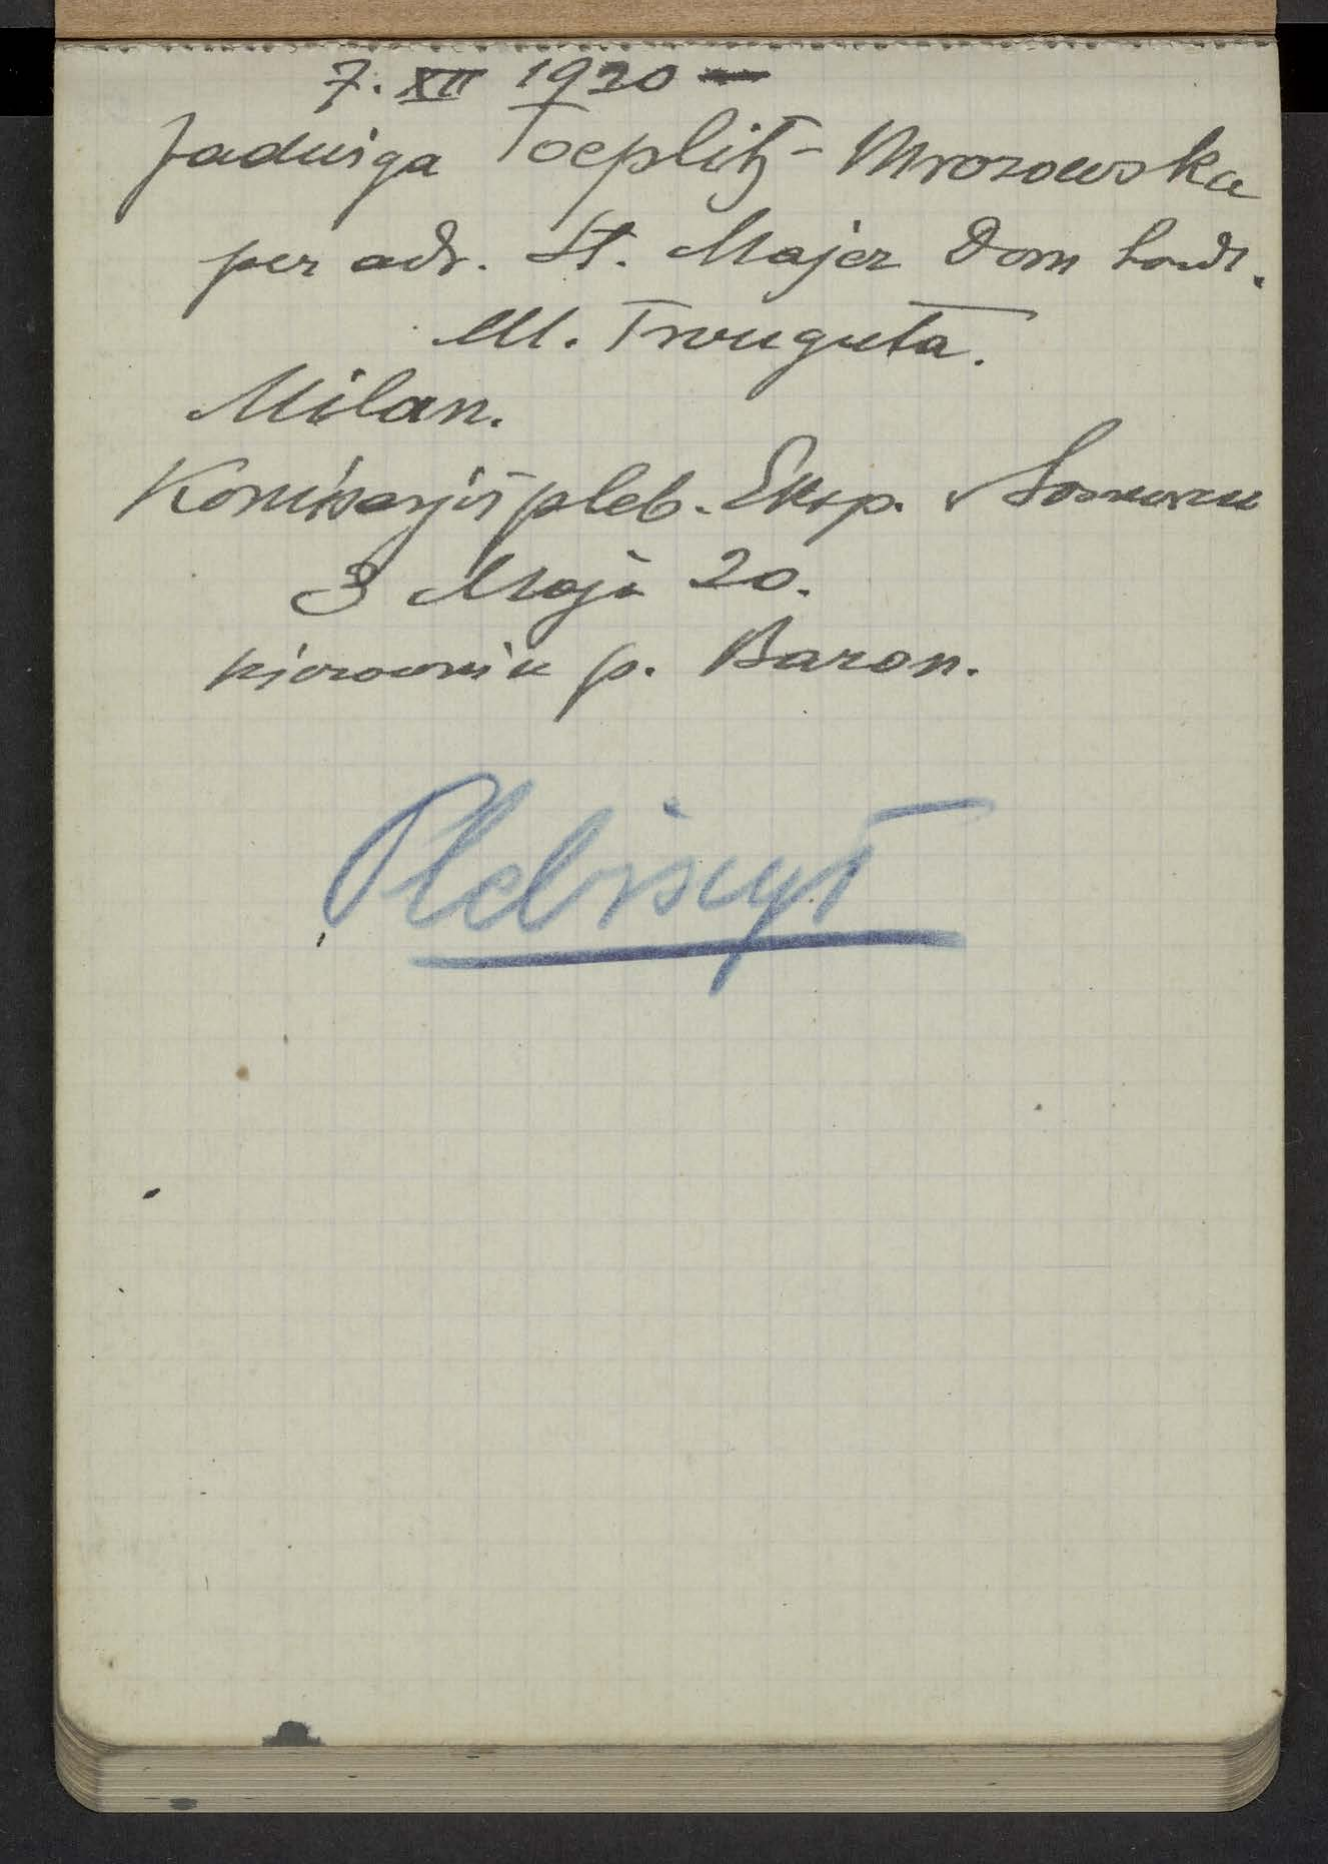 7. XII 1920 —
Jadwiga Toeplitz - Mrozowska
per adr. St. Majer Dom handl.
Ul. Trauguta.
Milan.
Komisarjat pleb. Eksp. w Sosnowcu
3 Maja 20.
kierownik p. Baron.
Plebiscyt